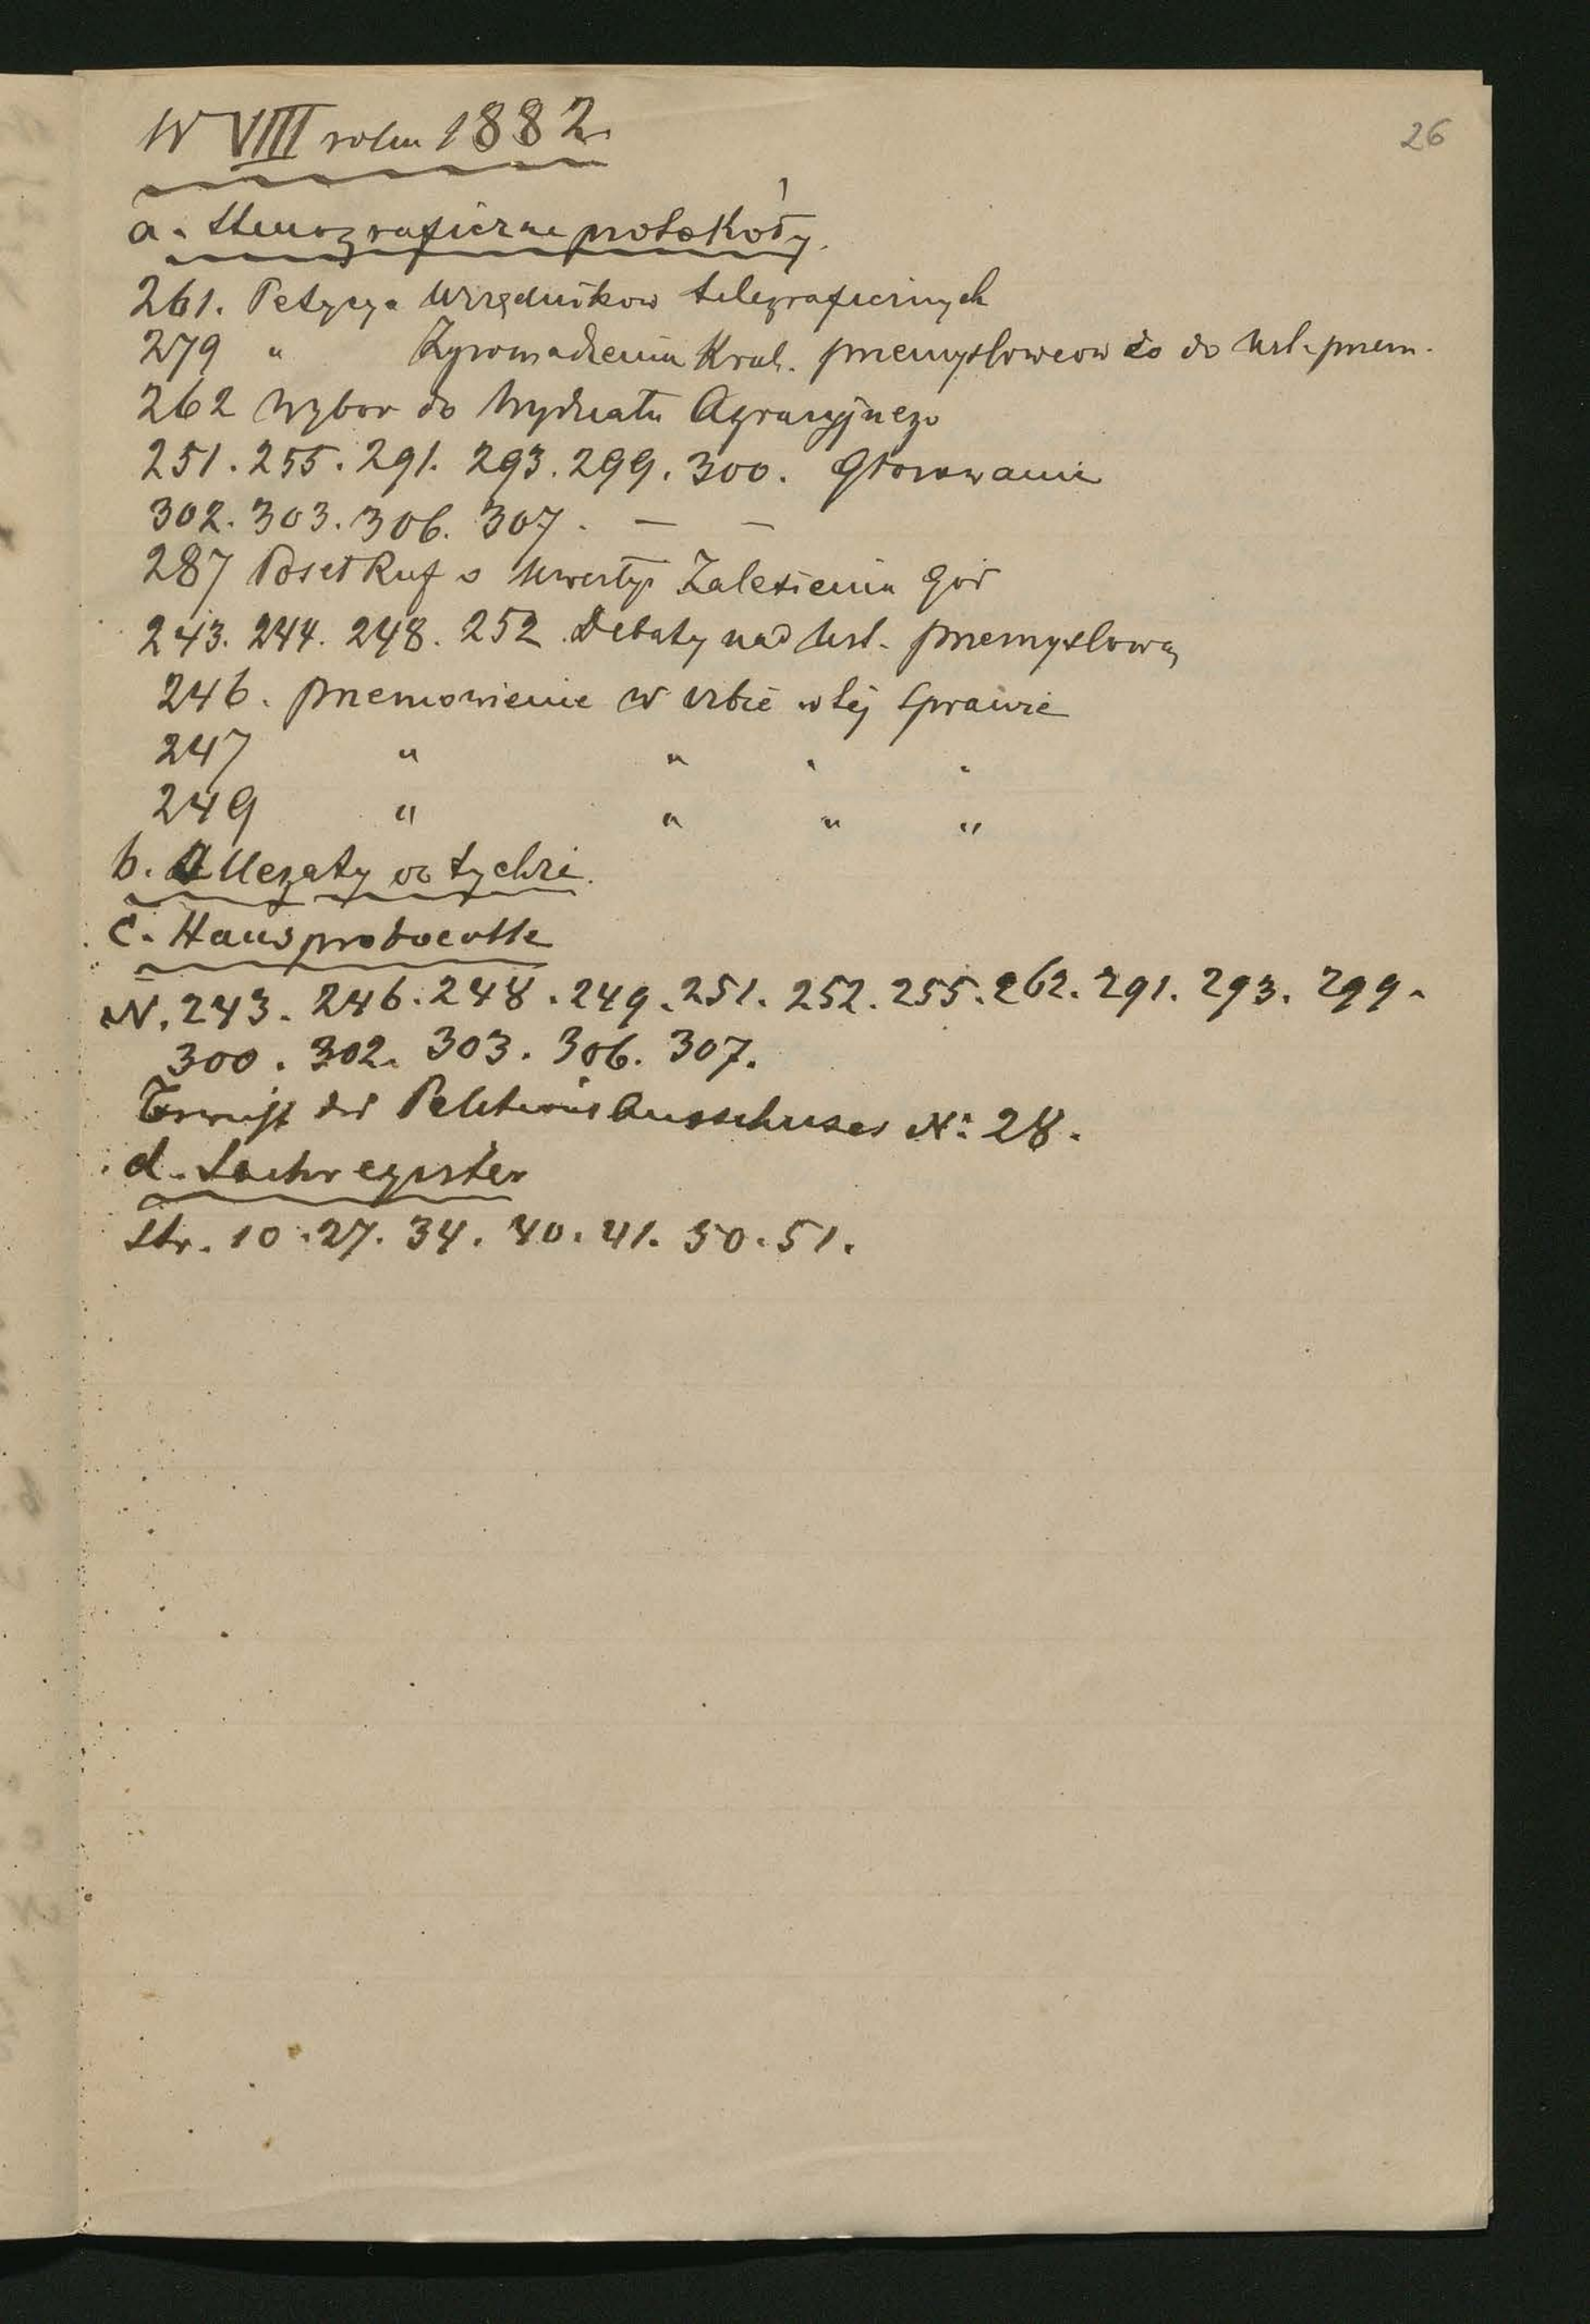 26
W VIII roku 1882.
a. Stenograficzne protokóły.
261. Petycya Urzędnikow telegraficznych
279 " Zgromadzenia Krak. przemysłowcow co do Ust. przem.
262 Wybor do Wydziału Agrarnyjnego
251. 255. 291. 293. 299. 300. Głosowanie
302. 303. 306. 307. — —
287 Poseł Ruf o kwestyi Zalesienia gór
243. 244. 248. 252 Debaty nad Ust. przemysłową
246. przemowienie w izbie w tej sprawie
247 " " " "
249 " " " "
b. Allegaty do tychże.
c. Hausprotocolle
N. 243. 246. 248. 249. 251. 252. 255. 262. 291. 293. 299.
300. 302. 303. 306. 307.
des Petitions Ausschuses No: 28.
d. Sachregister
Str. 10. 27. 34. 40. 41. 50. 51.